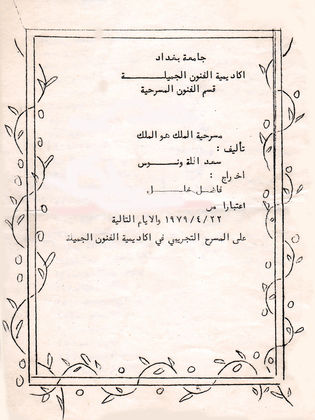 جامعة بغداد
اكاديمية الفنون الجميلـــــة
قسم الفنون المسرحية
مسرحية الملك هو الملك
تأليف :
سعد اللة ونـــوس
اخراج :
فاضل خليـــل
اعتبارا من
١٩٧٩/٤/٢٢ والايام التالية
على المسرح التجريبي في اكاديمية الفنون الجميلة